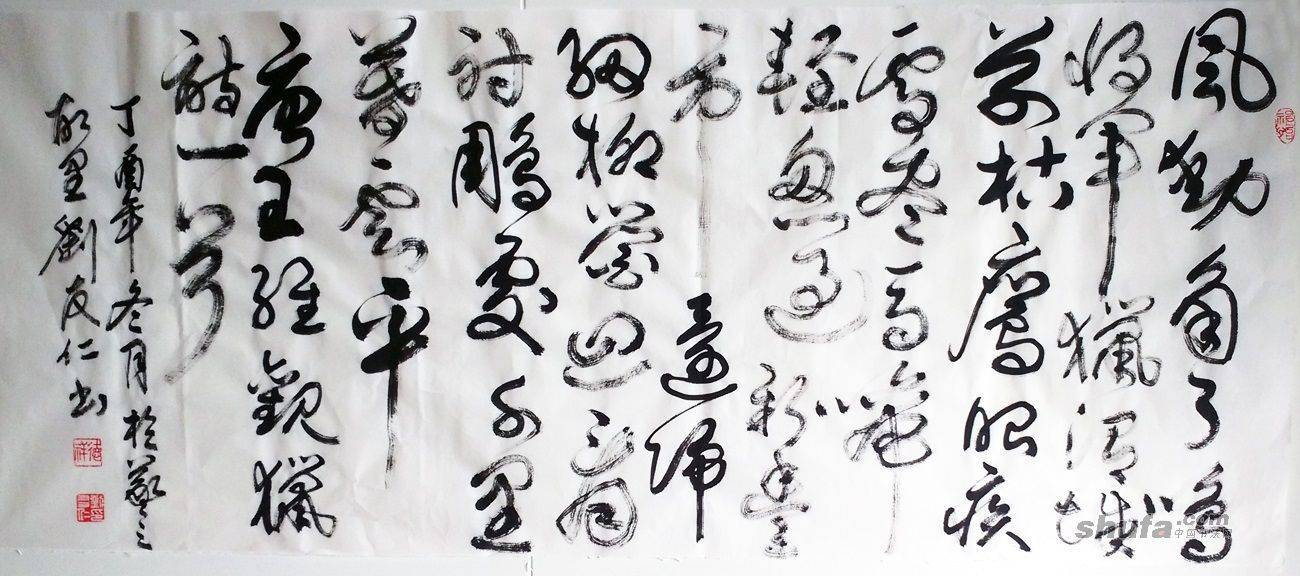 風勁角弓鳴
將軍獵渭城
草枯鷹眼疾
雪盡馬蹄
輕忽過新豐
市還歸
細柳營迴看
射鵰處千里
暮雲平
唐王維觀獵
詩一首
丁酉年冬月於羲之
故里劉友仁書
shufa.com